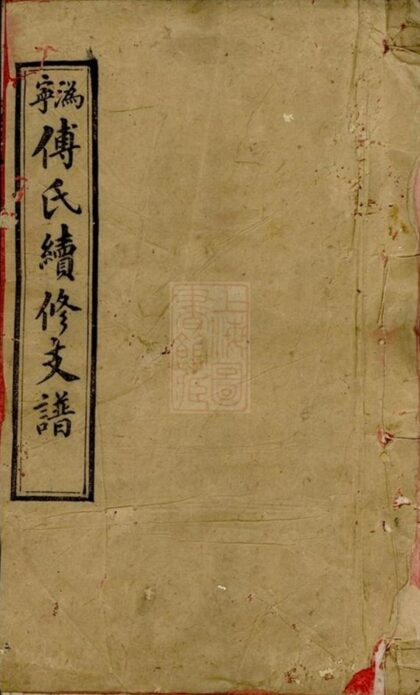 溈寧
傅氏續修支譜
上海圖
書館藏